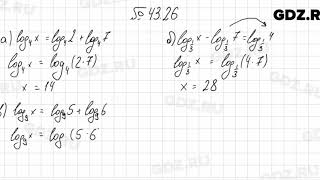 № 43.26
GDZ.RU
а) log₄ x = log₄ 2 + log₄ 7
log₄ x = log₄ (2·7)
x = 14
б) log_{1/3} x - log_{1/3} 7 = log_{1/3} 4
log_{1/3} x = log_{1/3} (4·7)
x = 28
в) log₉ x = log₉ 5 + log₉ 6
log₉ x = log (5·6